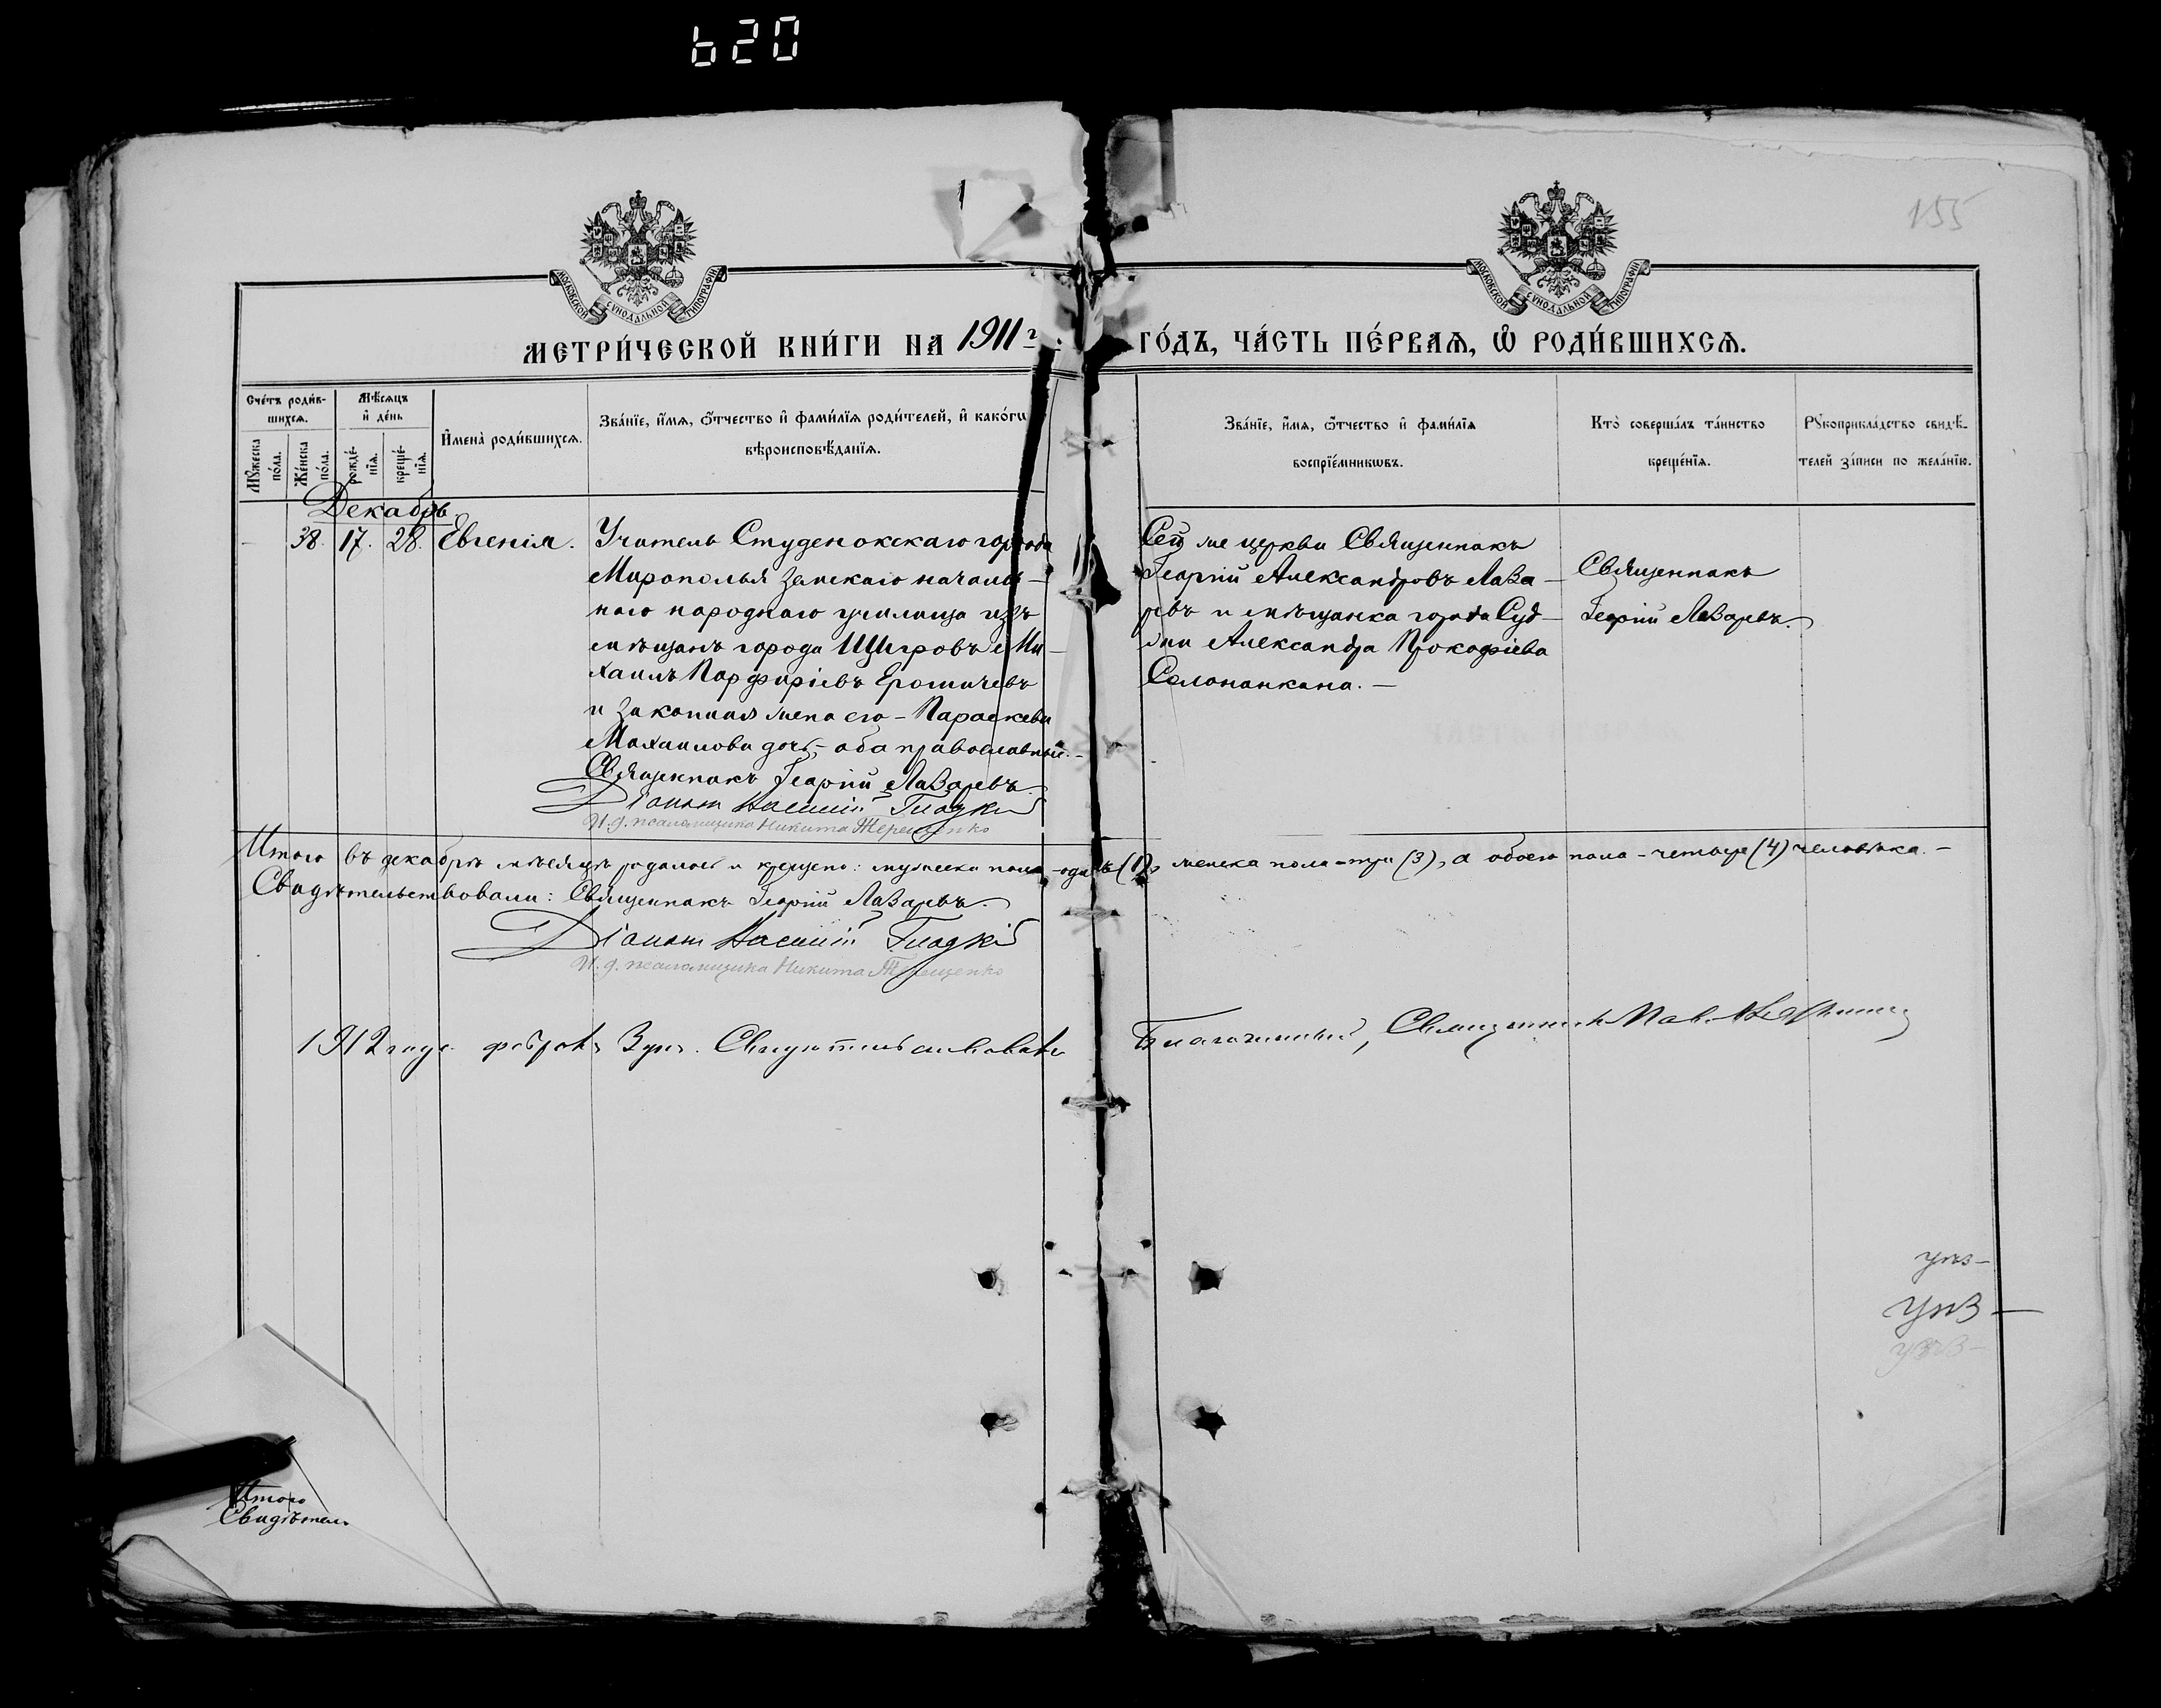 620
155
МОСКОВСКОЙ СѴНОДАЛЬНОЙ ТИПОГРАФІИ
МОСКОВСКОЙ СѴНОДАЛЬНОЙ ТИПОГРАФІИ
МЕТРИ́ЧЕСКОЙ КНИ́ГИ НА 1911 г. ГО́ДЪ, ЧА́СТЬ ПЕ́РВАѦ, Ѡ҆ РОДИ́ВШИХСѦ.
Сче́тъ роди́в-
шихсѧ.
Мѣ́сѧцъ
и҆ де́нь
Мꙋ́жеска
по́ла.
Же́нска
по́ла.
рожде́-
нїѧ.
креще́-
нїѧ.
И҆мена̀ роди́вшихсѧ.
Зва́нїе, и҆́мѧ, ѻ҆́тчество и҆ фами́лїѧ роди́телей, и҆ како́гѡ
вѣроисповѣ́данїѧ.
Зва́нїе, и҆́мѧ, ѻ҆́тчество и҆ фами́лїѧ
воспрїе́мникѡвъ.
Кто̀ соверша́лъ та́инство
креще́нїѧ.
Рꙋкоприкла́дство свидѣ́-
телей за́писи по жела́нїю.
Декабрь.
– 38. 17. 28. Евгенія.
Учитель Студенокскаго города
Мирополья земскаго началь-
наго народнаго училища изъ
мѣщанъ города Щигровъ Ми-
хаилъ Парфиріевъ Ерошичевъ
и законная жена его - Параскева
Михаилова дочь, - оба православные. -
Священникъ Георгій Лазаревъ.
Діаконъ Василій Гладкій
И. д. псаломщика Никита Терещенко
Сей же церкви Священникъ
Георгій Александровъ Лаза-
ревъ и мѣщанка города Суд-
жи Александра Прокофіева
Священникъ
Георгій Лазаревъ.
Итого въ декабрѣ мѣсяцѣ родилось и крещено: мужеска пола - одинъ (1), женска пола - три (3), а обоего пола - четыре (4) человѣка. -
Свидѣтельствовали: Священникъ Георгій Лазаревъ.
Діаконъ Василій Гладкій
И. д. псаломщика Никита Терещенко
1912 года февраля 3 дня. Свидѣтельствовалъ Благочинный, Священникъ
Итого
Свидѣтел